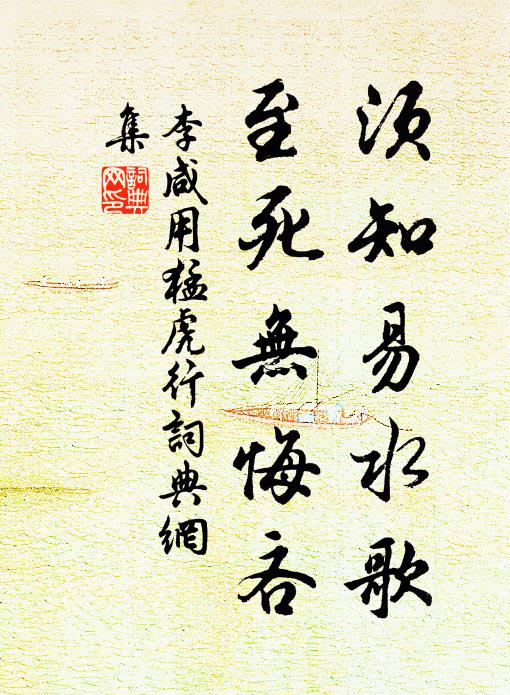 須知易水歌
至死無悔吝
李咸用猛虎行詞典網
集
詞典
网印